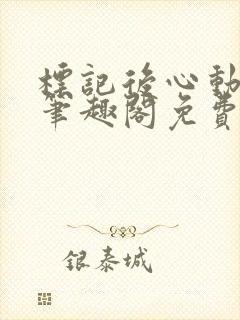 標記後心動
筆趣閣免費
銀泰城